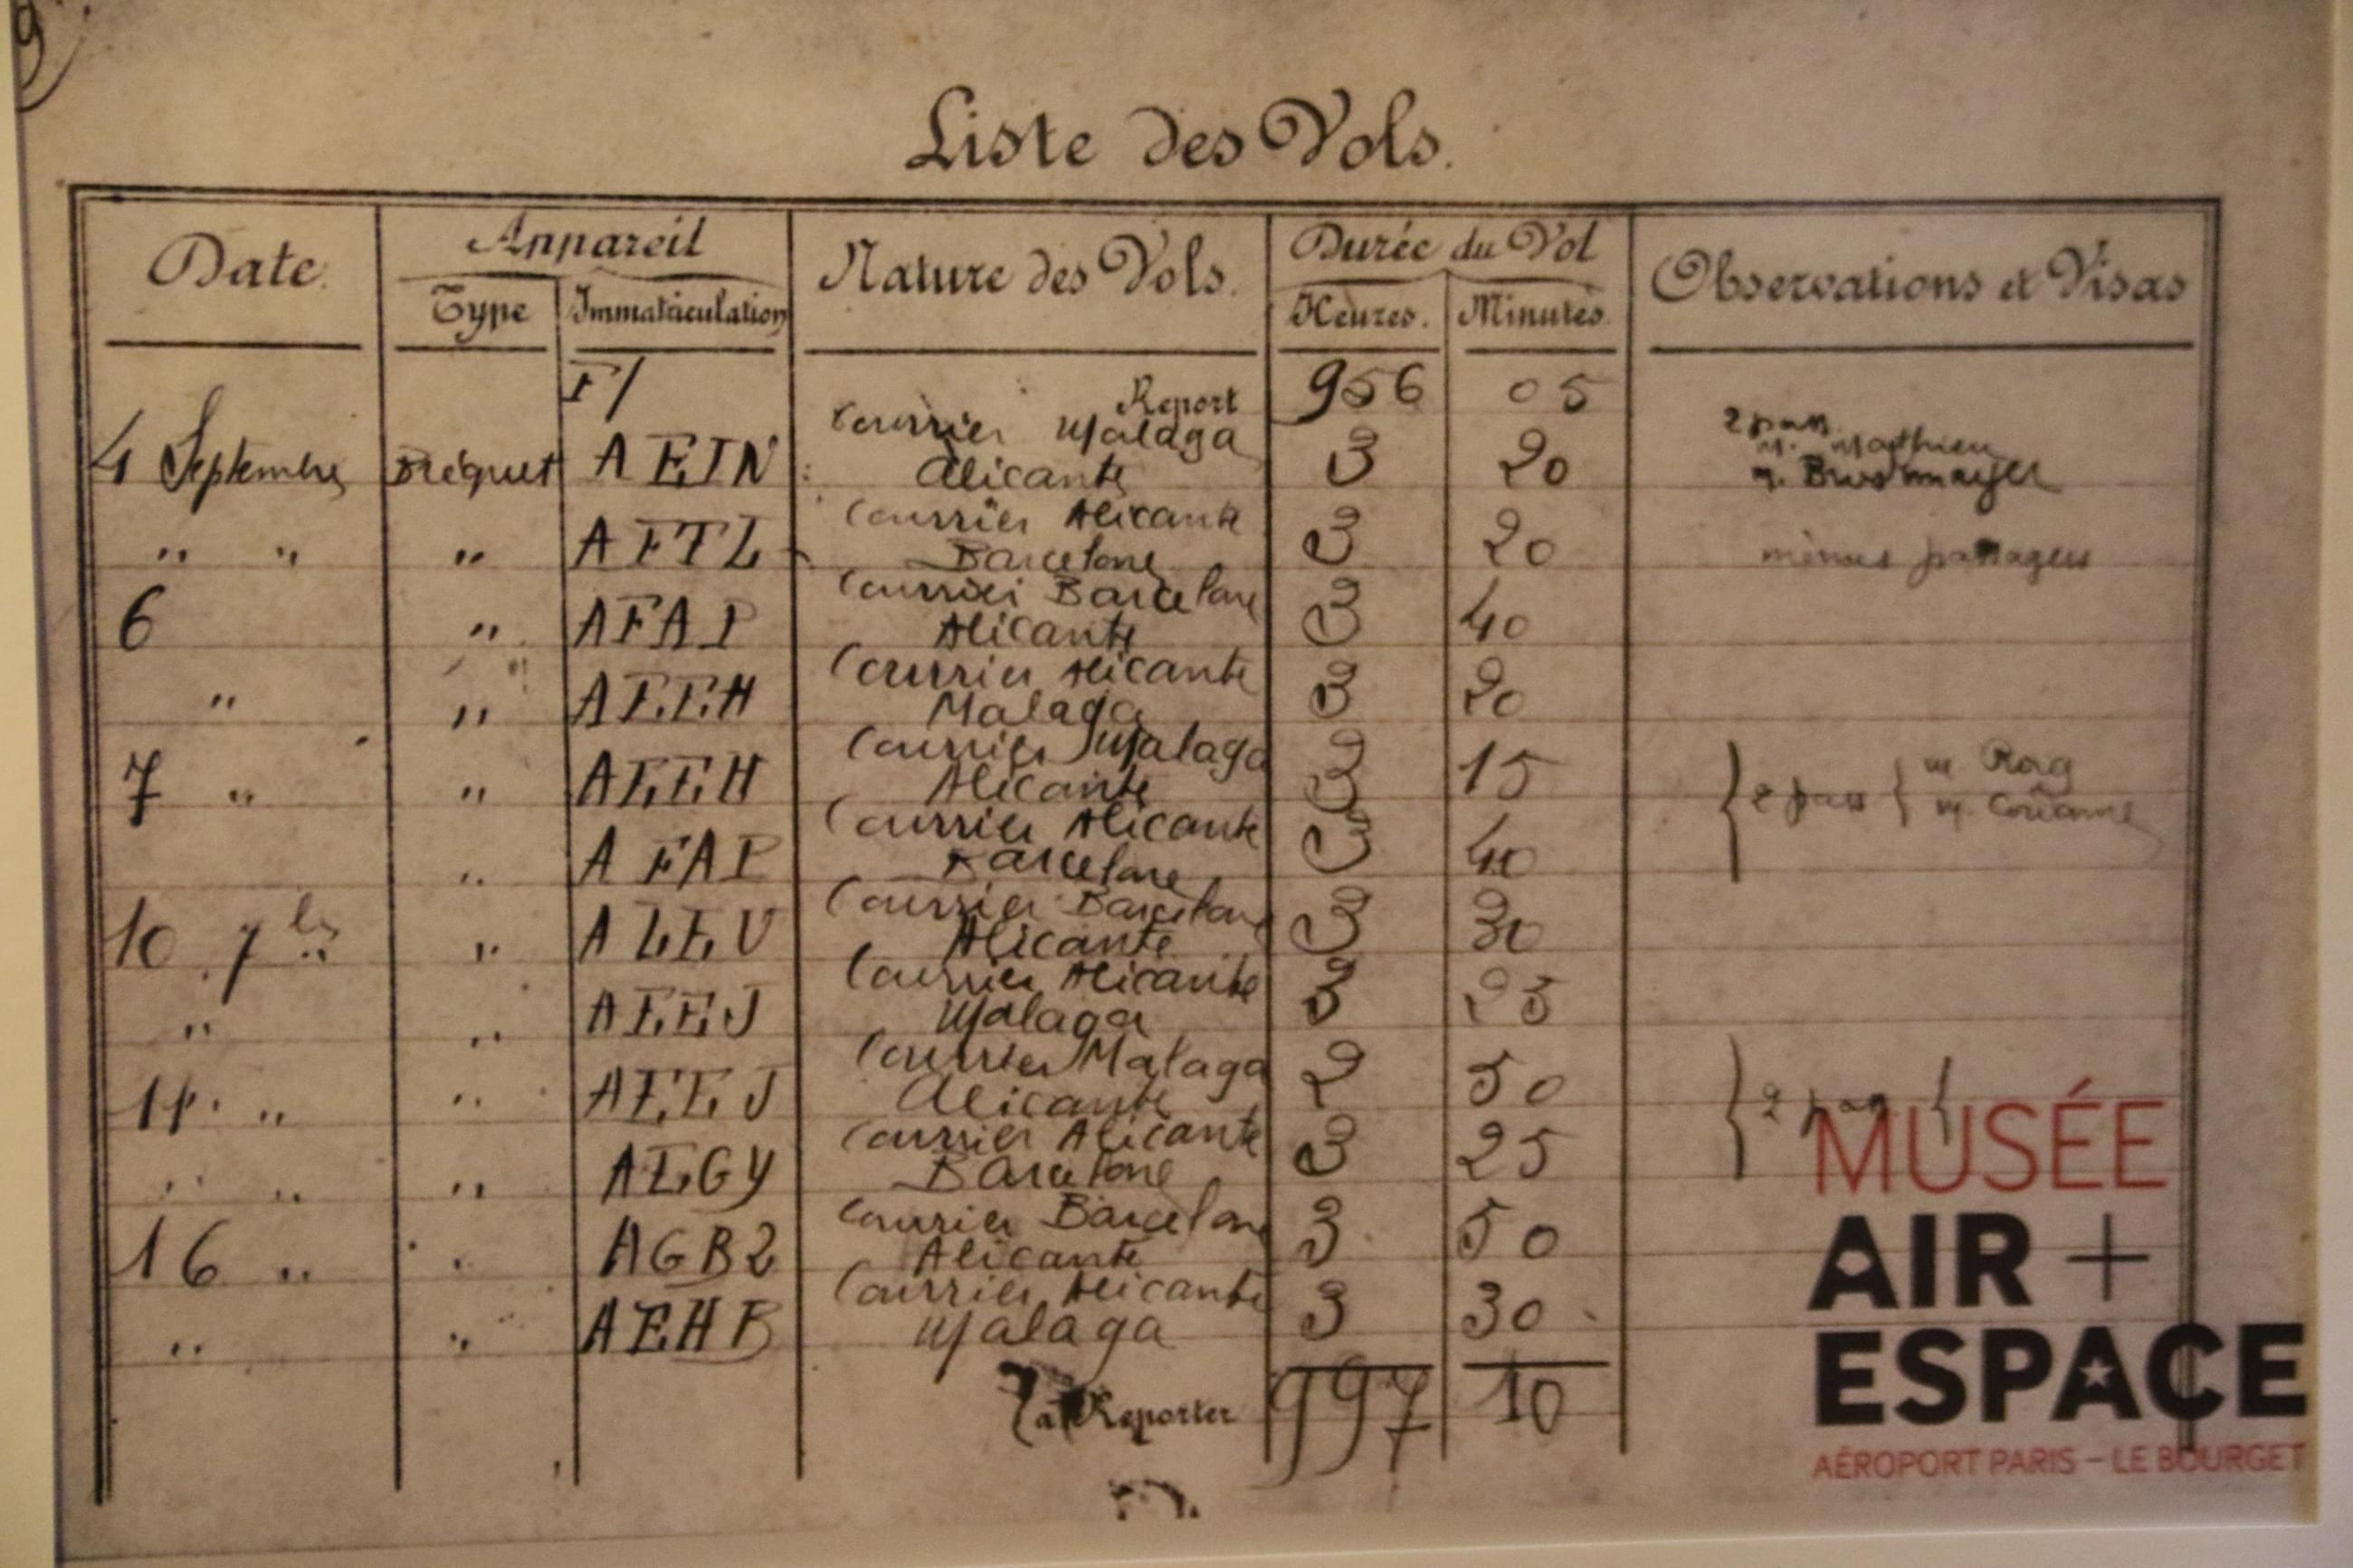 Liste des Vols.
Date. Appareil Nature des Vols. Durée du Vol Observations et Visas
Type Immatriculation Heures. Minutes.
F/ Report 956 05
Courrier Malaga 2 pass.
4 Septembre Breguet AEIN Alicante 3 20 M. Mathieu
M.
Courrier Alicante
" " " AFTL Barcelone 3 20 mêmes passagers
Courrier Barcelone
6 " AFAP Alicante 3 40
Courrier Alicante
" " AEEH Malaga 3 20
Courrier Malaga
7 " " AEEH Alicante 3 15 2 pass M. Rag
M.
Courrier Alicante
" AFAP Barcelone 3 40
Courrier Barcelone
10 7bre " ALEU Alicante 3 30
Courrier Alicante
" " AEEJ Malaga 3 25
Courrier Malaga
11 " " AEEJ Alicante 2 50 2 pass
Courrier Alicante
" " " AEGY Barcelone 3 25
Courrier Barcelone
16 " " AGBZ Alicante 3 50
Courrier Alicante
" " AEHB Malaga 3 30
à Reporter 997 10
MUSÉE
AIR +
ESPACE
AÉROPORT PARIS – LE BOURGET